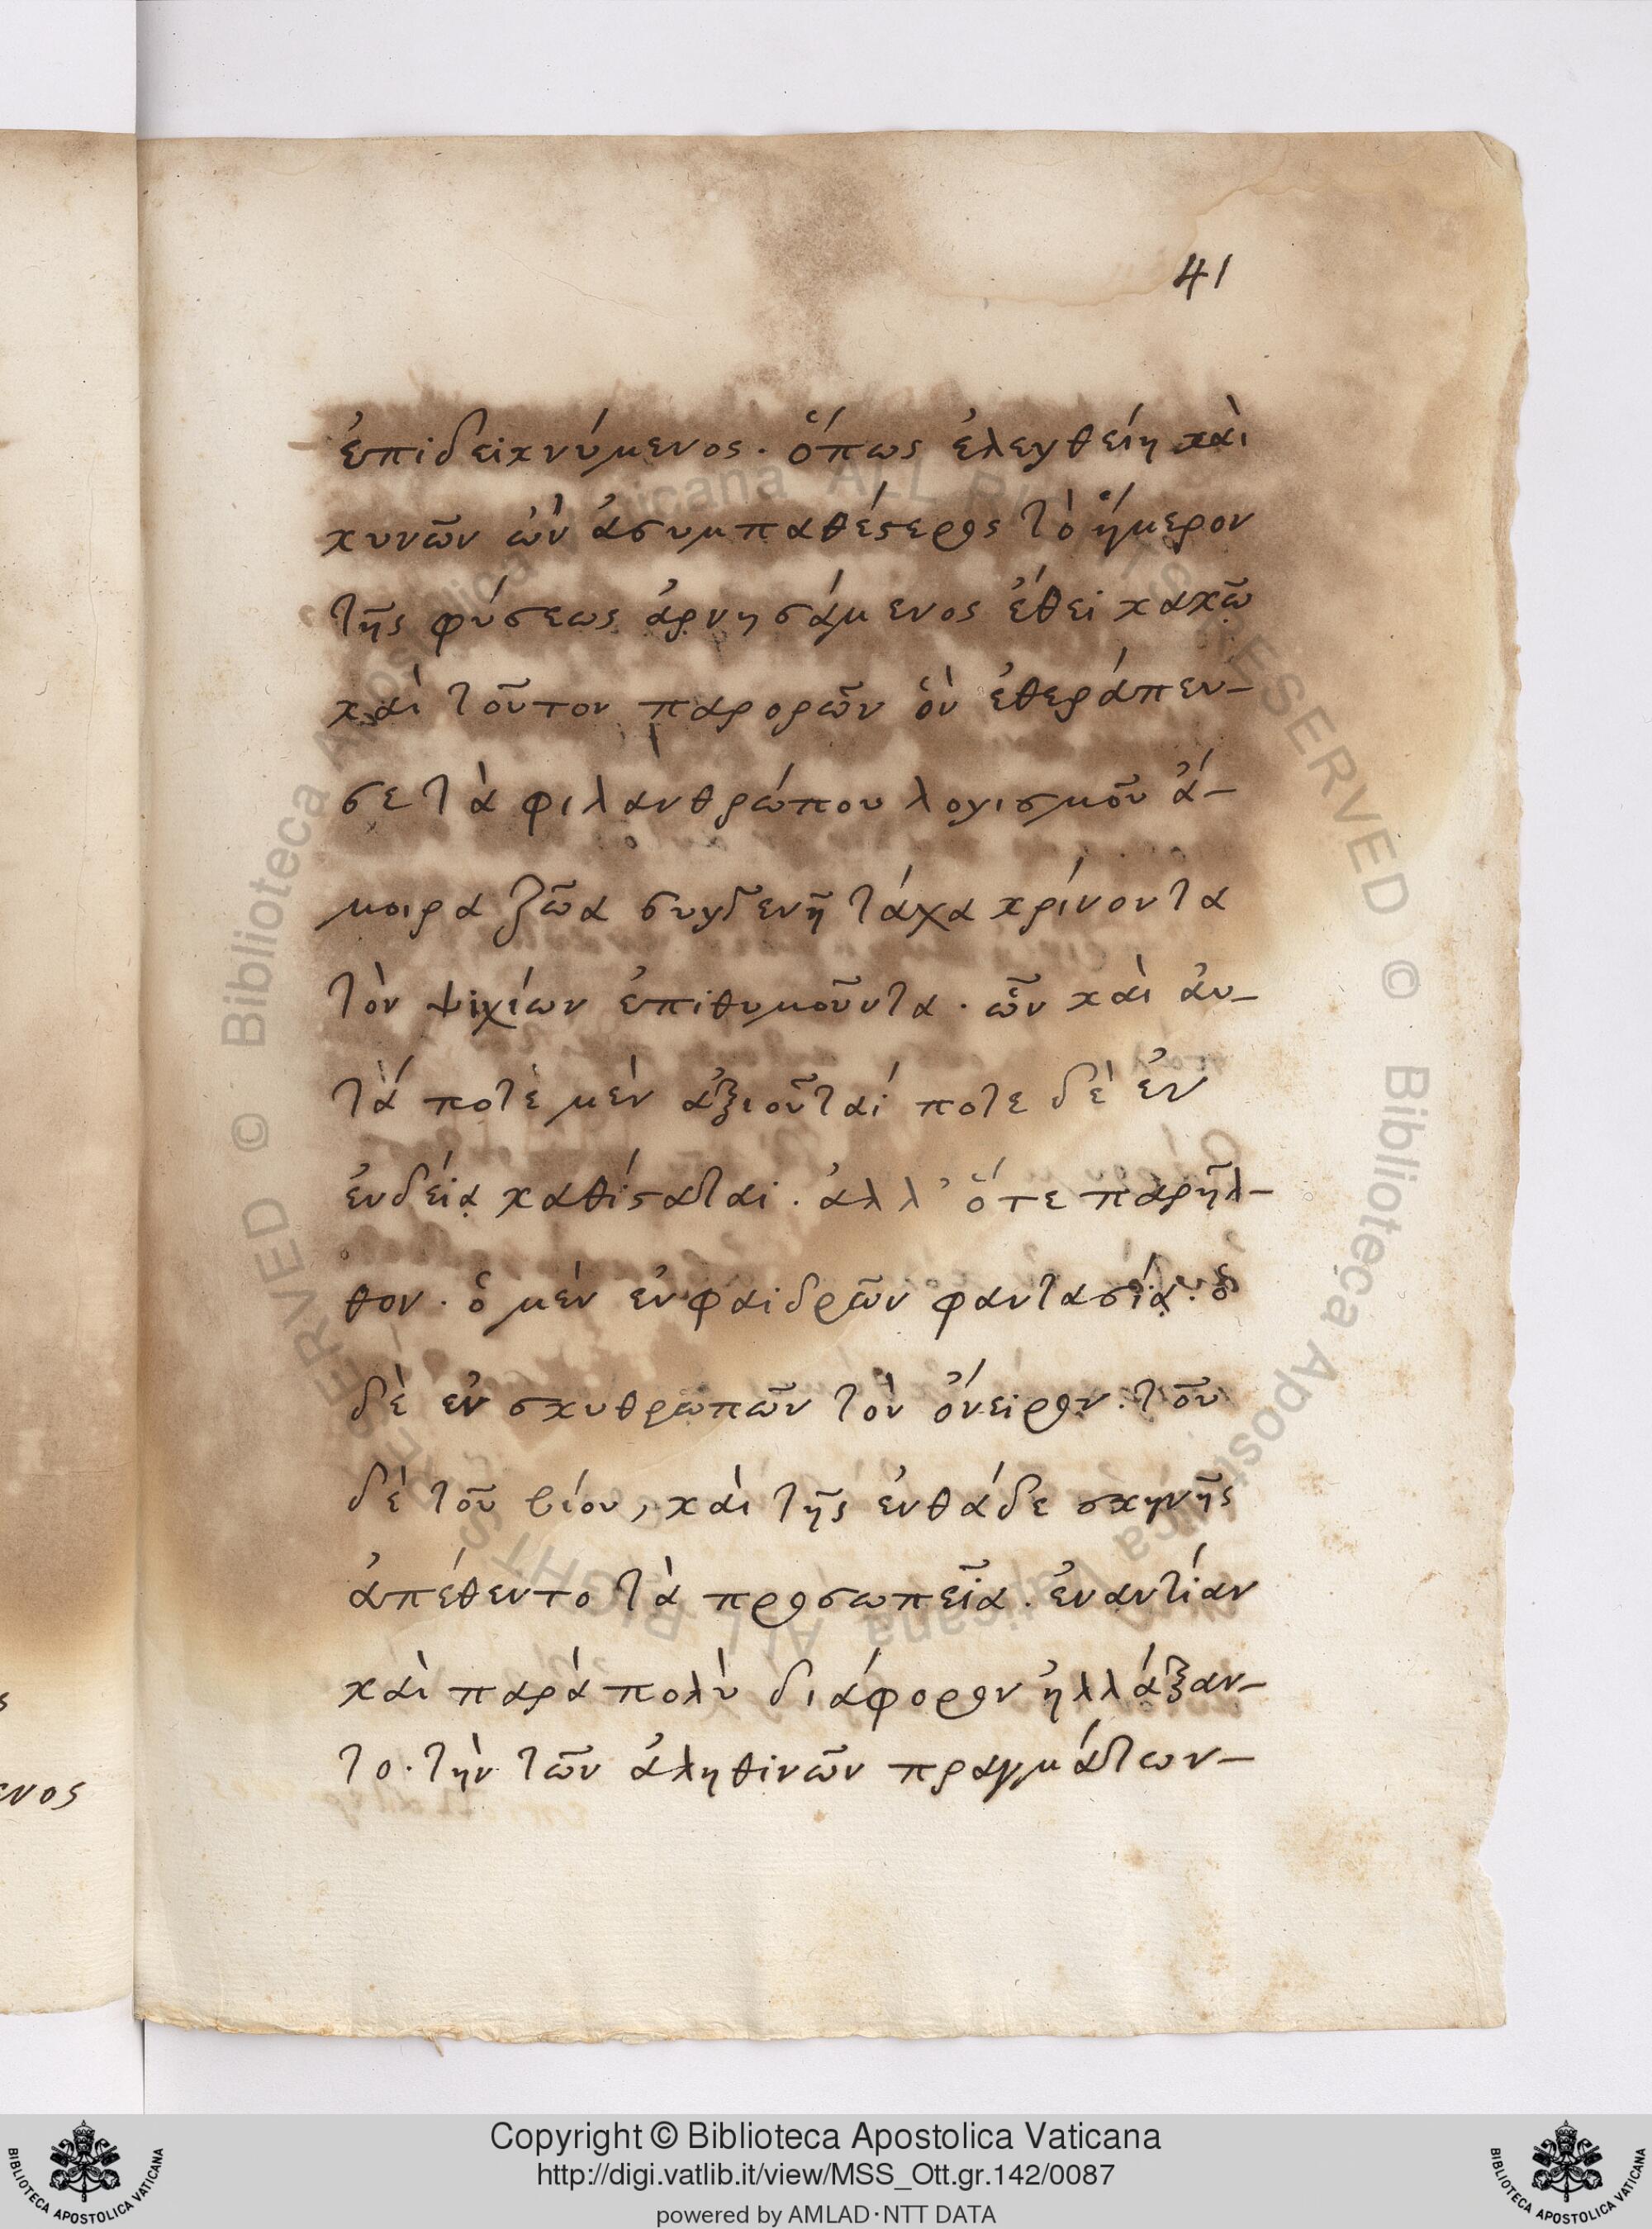 41
ἐπιδεικνύμενος. ὅπως ἐλεηθείη καὶ
κυνῶν ὢν ἀσυμπαθέστερος τὸ ἥμερον
τῆς φύσεως ἀρνησάμενος ἔθει κακῶ
καὶ τοῦτον παρορῶν ὃν ἐθεράπευ-
σε τὰ φιλανθρώπου λογισμοῦ ἄ-
μοιρα ζῶα συγγενῆ τάχα κρίνοντα
τὸν ψιχίων ἐπιθυμοῦντα. ὧν καὶ αὐ-
τά ποτὲ μὲν ἀξιοῦταί ποτε δὲ ἐν
ἐνδείᾳ καθίσταται. ἀλλ' ὅτε παρῆλ-
θον. ὁ μὲν εὐφαιδρῶν φαντασίᾳ. ὁ
δὲ ἐν σκυθρωπῶν τὸν ὄνειρον. τοῦ
δὲ τοῦ βίου, καὶ τῆς ἐνθάδε σκηνῆς
ἀπέθεντο τὰ προσωπεῖα. ἐναντίαν
καὶ παρὰ πολὺ διάφορον ἠλλάξαν-
το. τὴν τῶν ἀληθινῶν πραγμάτων-
ς
ενος
Biblioteca Apostolica Vaticana ALL RIGHTS RESERVED © Biblioteca Apostolica Vaticana ALL RIGHTS RESERVED ©
Copyright © Biblioteca Apostolica Vaticana
http://digi.vatlib.it/view/MSS_Ott.gr.142/0087
powered by AMLAD·NTT DATA
BIBLIOTECA APOSTOLICA VATICANA
BIBLIOTECA APOSTOLICA VATICANA